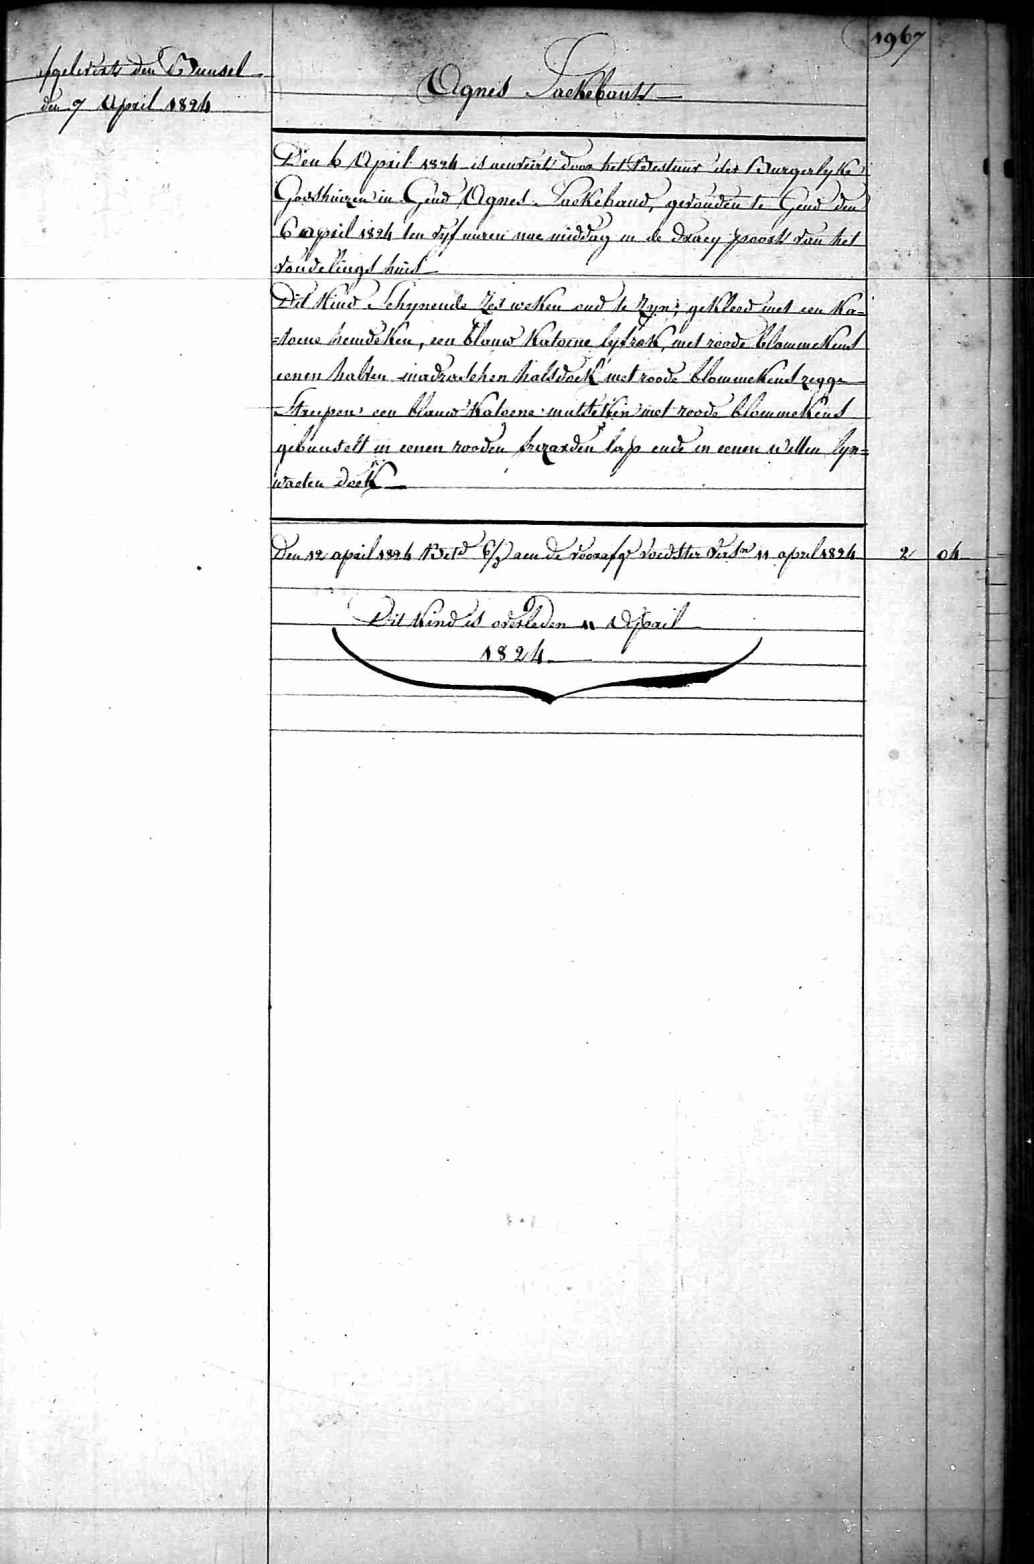 1967
afgelevert den Bunsel
den 7 April 1824
Agnes Lackebants
Den 6 April 1824 is aenveirt door het Bestuur der Burgerlyke
Godshuizen in Gend Agnes Lackeband, gevonden te Gend den
6 april 1824 ten vyf uuren nae middag in de draey poort van het
vondelings huis
Dit Kind Schynende Zes weken oud te Zyn; gekleed met een Ka-
=toene hemdeken, een blauw Katoene lyfrok, met roode blommekens
eenen halven madraschen halsdoek met roode blommekens zegge
Streepen een blauw Katoene mutsteken met roode blommekens
gebunselt in eenen rooden lap ende in eenen witten lyn=
waeten doek
Den 12 april 1824 Bet.d aen de voorafg.e voedster 11 april 1824 2 04
Dit Kind is overleden 11 April
1824